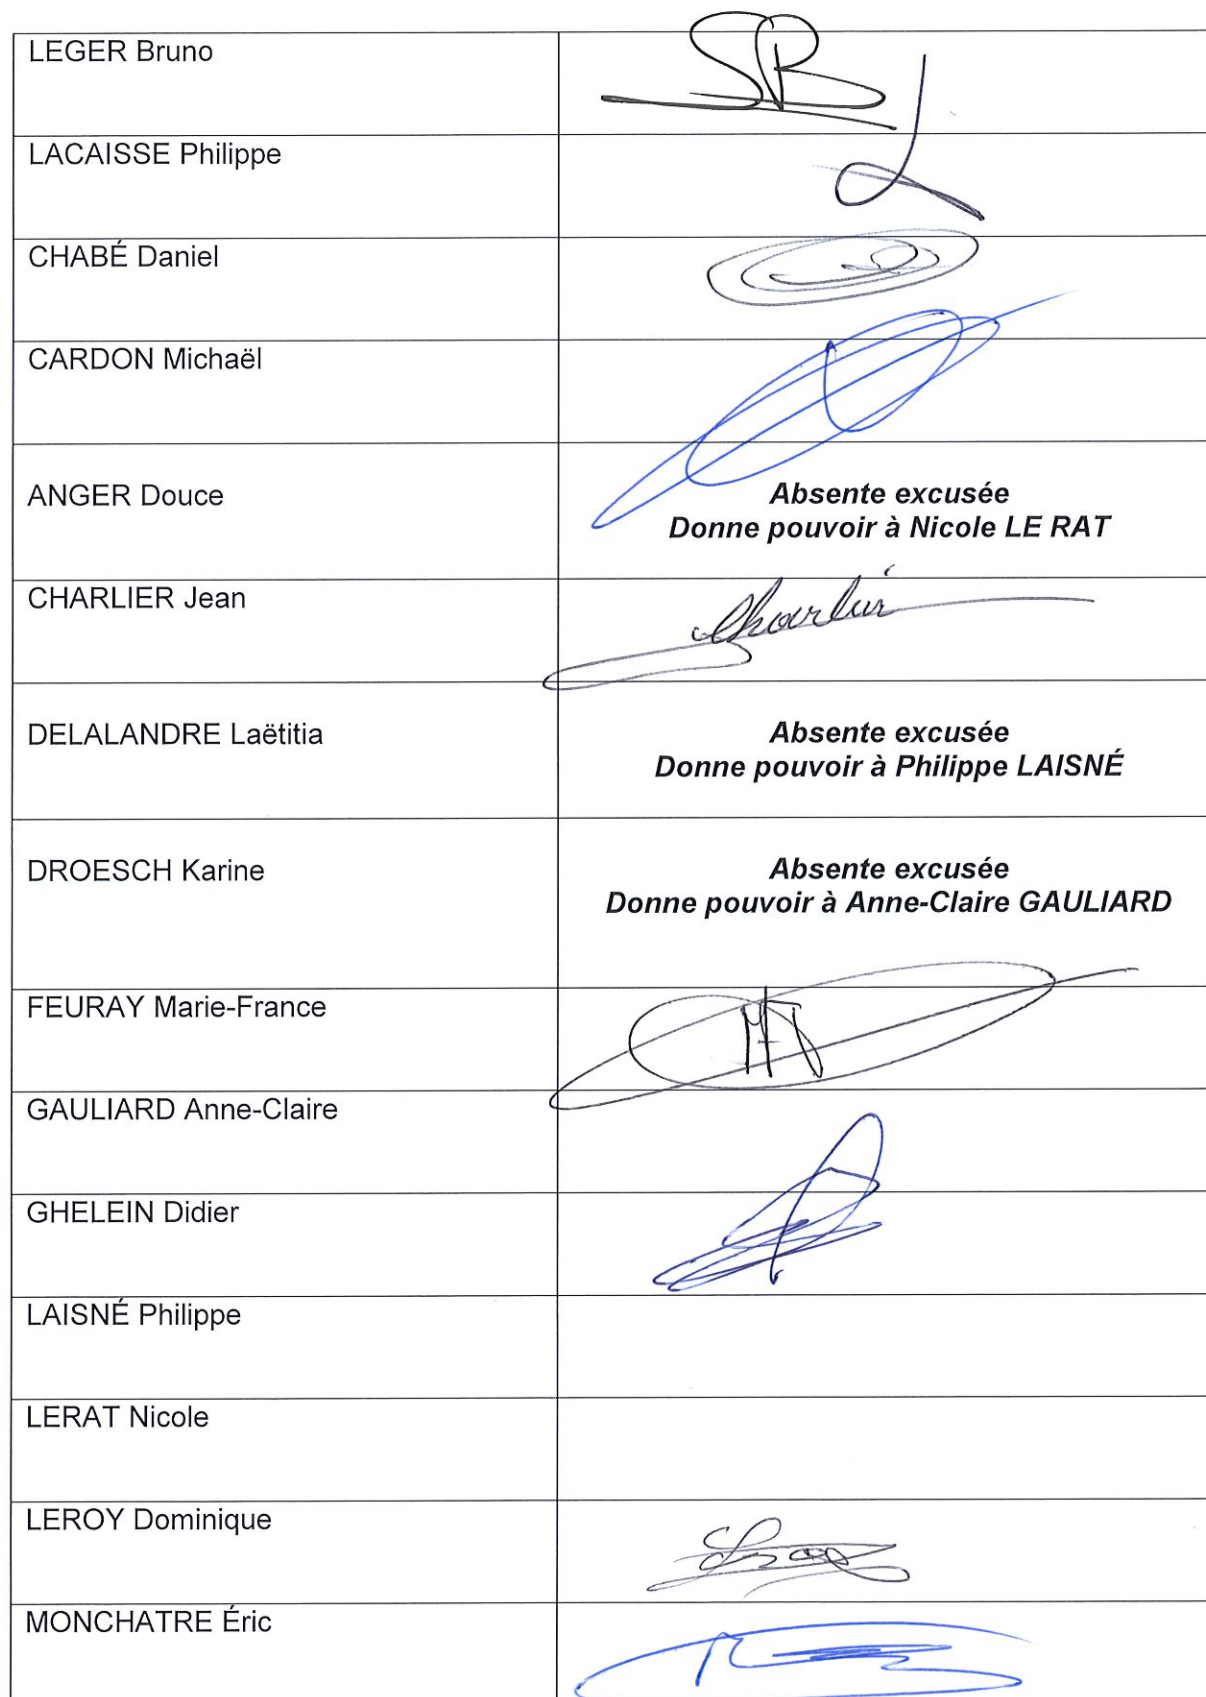 LEGER Bruno
LACAISSE Philippe
CHABÉ Daniel
CARDON Michaël
ANGER Douce
Absente excusée
Donne pouvoir à Nicole LE RAT
CHARLIER Jean
Charlier
DELALANDRE Laëtitia
Absente excusée
Donne pouvoir à Philippe LAISNÉ
DROESCH Karine
Absente excusée
Donne pouvoir à Anne-Claire GAULIARD
FEURAY Marie-France
GAULIARD Anne-Claire
GHELEIN Didier
LAISNÉ Philippe
LERAT Nicole
LEROY Dominique
MONCHATRE Éric